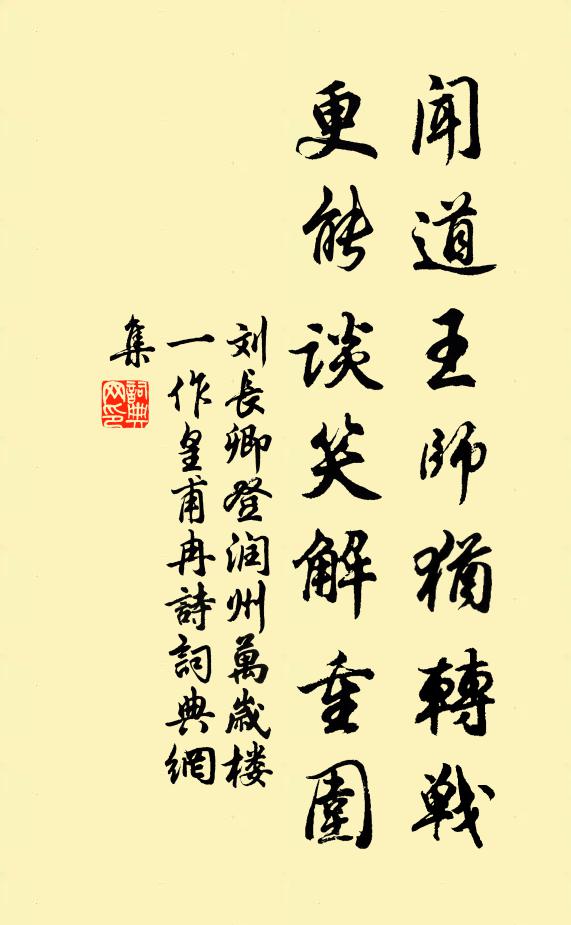 闻道王师猶轉戰
更能谈笑解重圍
刘長卿登润州萬歲楼
一作皇甫冉詩詞典網
集
詞典网印